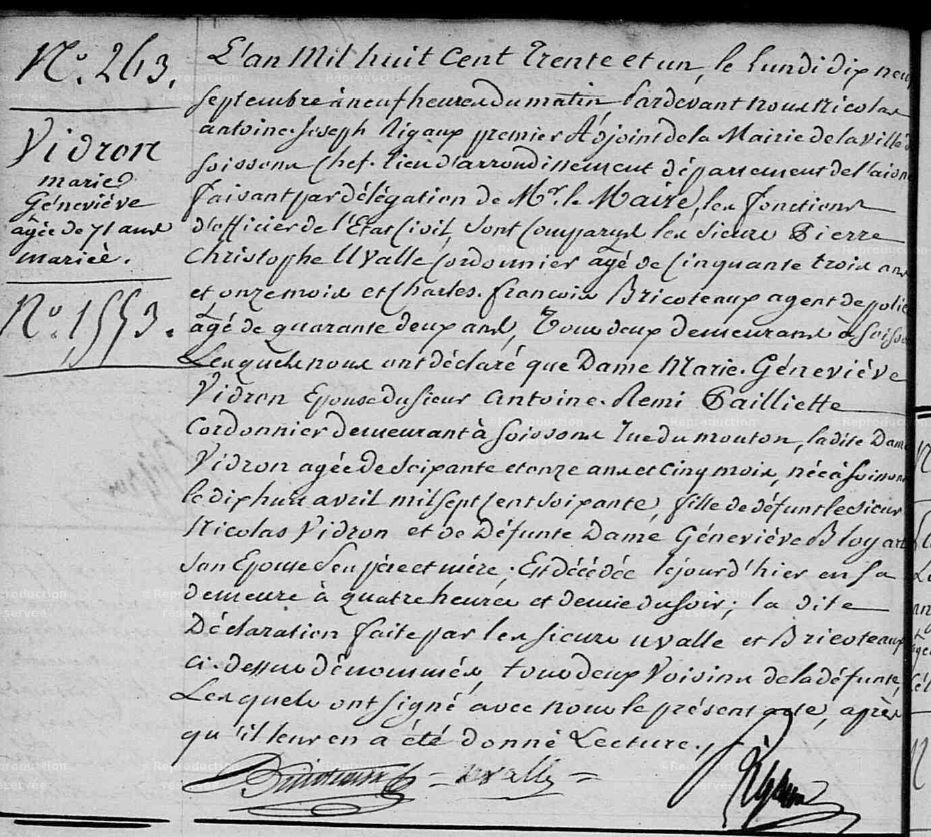 N.º 263,
Vidron
marie
Géneviève
agée de 71 ans
mariée.
N.º 1553.
L'an Mil huit Cent Trente et un, le lundi dix neuf
septembre à neuf heures du matin Pardevant nous Nicolas
antoine-Joseph Rigaux premier Adjoint de la Mairie de la Ville de
Soissons Chef-lieu d'arrondissement département de l'aisne
faisant par délégation de Mr. le Maire, les fonctions
d'officier de l'Etat Civil, sont comparus les sieurs Pierre
Christophe Uvalle Cordonnier agé de Cinquante trois ans
et onze mois et Charles-françois Bricoteaux agent de police
agé de quarante deux ans, Tous deux demeurans à Soissons
Lesquels nous ont déclaré que Dame Marie-Géneviève
Vidron Epouse du sieur Antoine-Remi Pailliette
Cordonnier demeurant à Soissons rue du mouton, la dite Dame
Vidron agée de soixante et onze ans et cinq mois, née à Soissons
le dix huit avril mil sept cent soixante, fille de défunt le sieur
Nicolas Vidron et de Défunte Dame Géneviève Bloyart
son Epouse ses père et mère; Est décédée cejourd'hier en sa
demeure à quatre heures et demie du soir; la dite
Déclaration faite par les sieurs uvalle et Bricoteaux
ci-dessus dénommés, tous deux Voisins de la défunte,
Lesquels ont signé avec nous le présent acte, après
qu'il leur en a été donné Lecture.
Bricoteaux = uvalle =
Rigaux